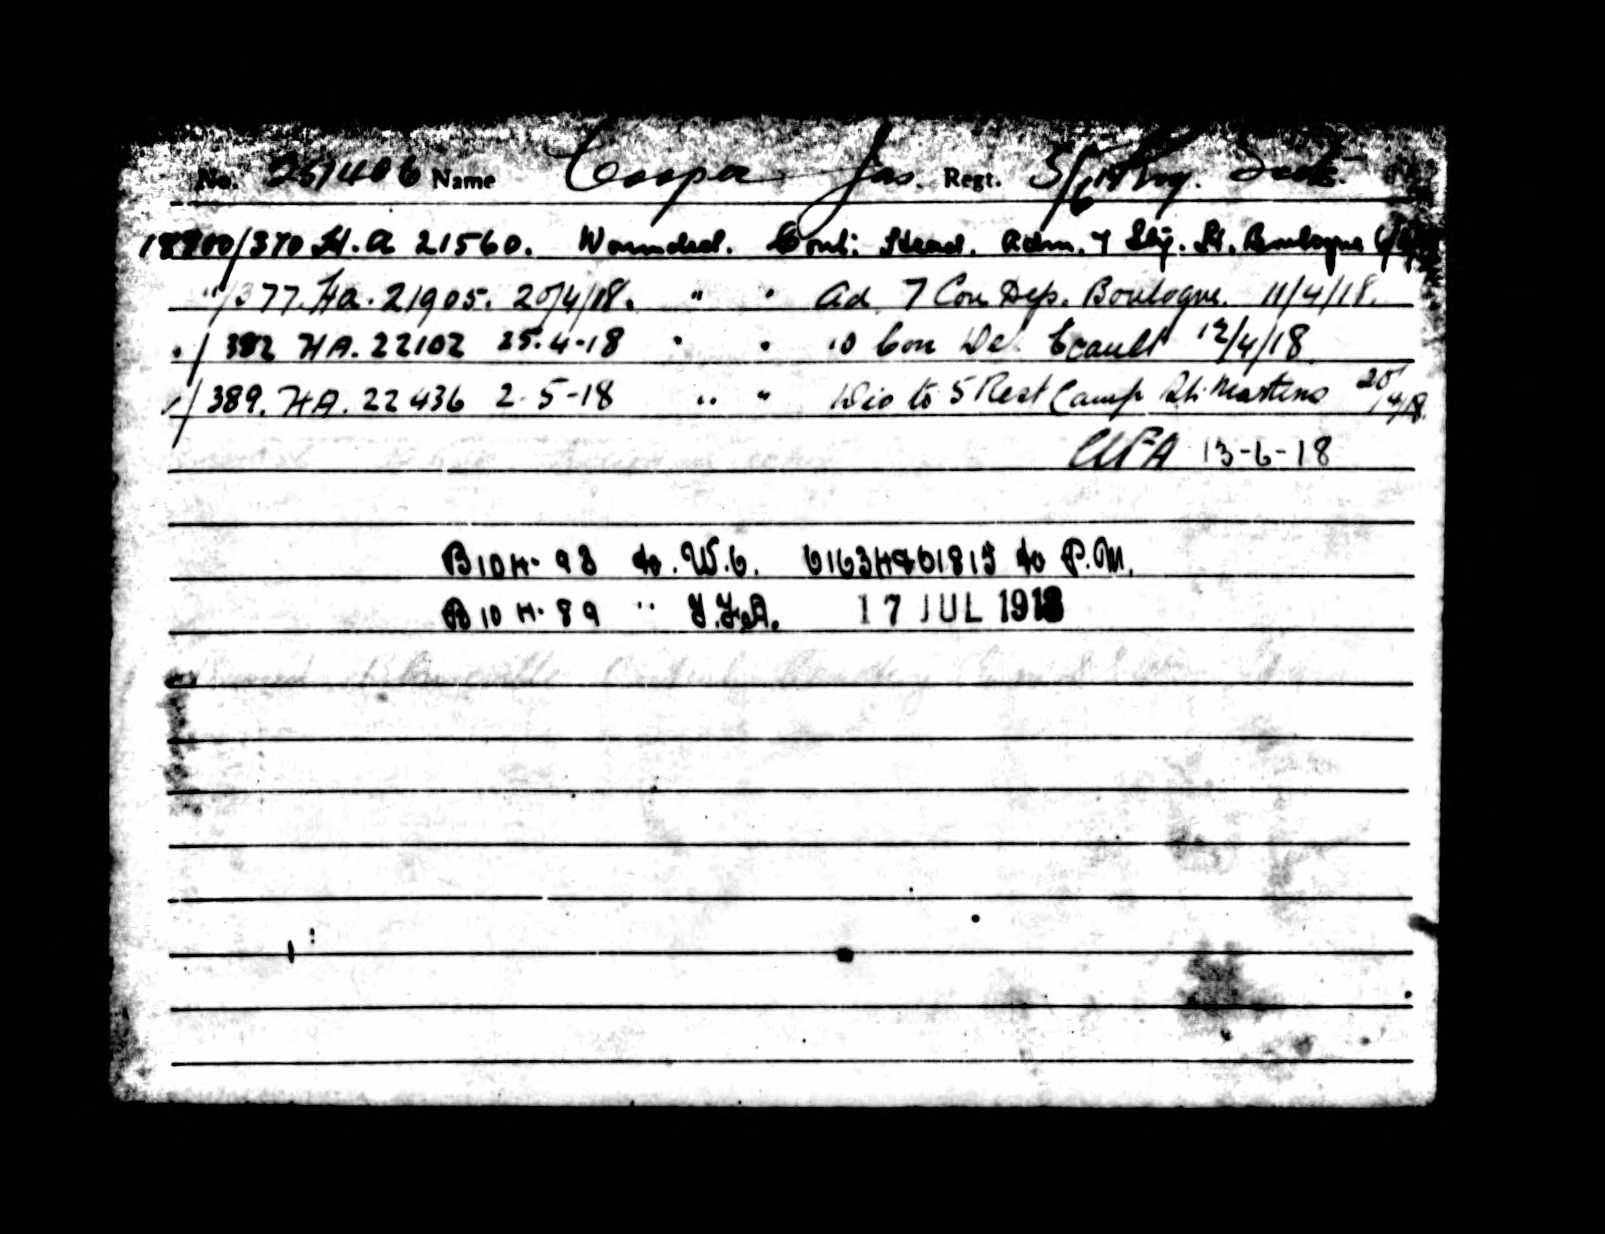 No. 251406 Name Cooper Jas. Regt. 5/6th Roy. Scots.
18900/370 H.A 21560. Wounded. Cont: Head. Adm. 7 Sty. H. Boulogne
"/377. HA. 21905. 20/4/18. " " Ad 7 Con Dep. Boulogne. 11/4/18.
"/382 HA. 22102 25.4.18 " " 10 Con De. Ecault 12/4/18
"/389. HA. 22436 2-5-18 " " Dis to 5 Rest Camp St. Martins 20/4/18.
13-6-18
B104-93 to. W.O. to P.M.
B104-89 " 17 JUL 1918